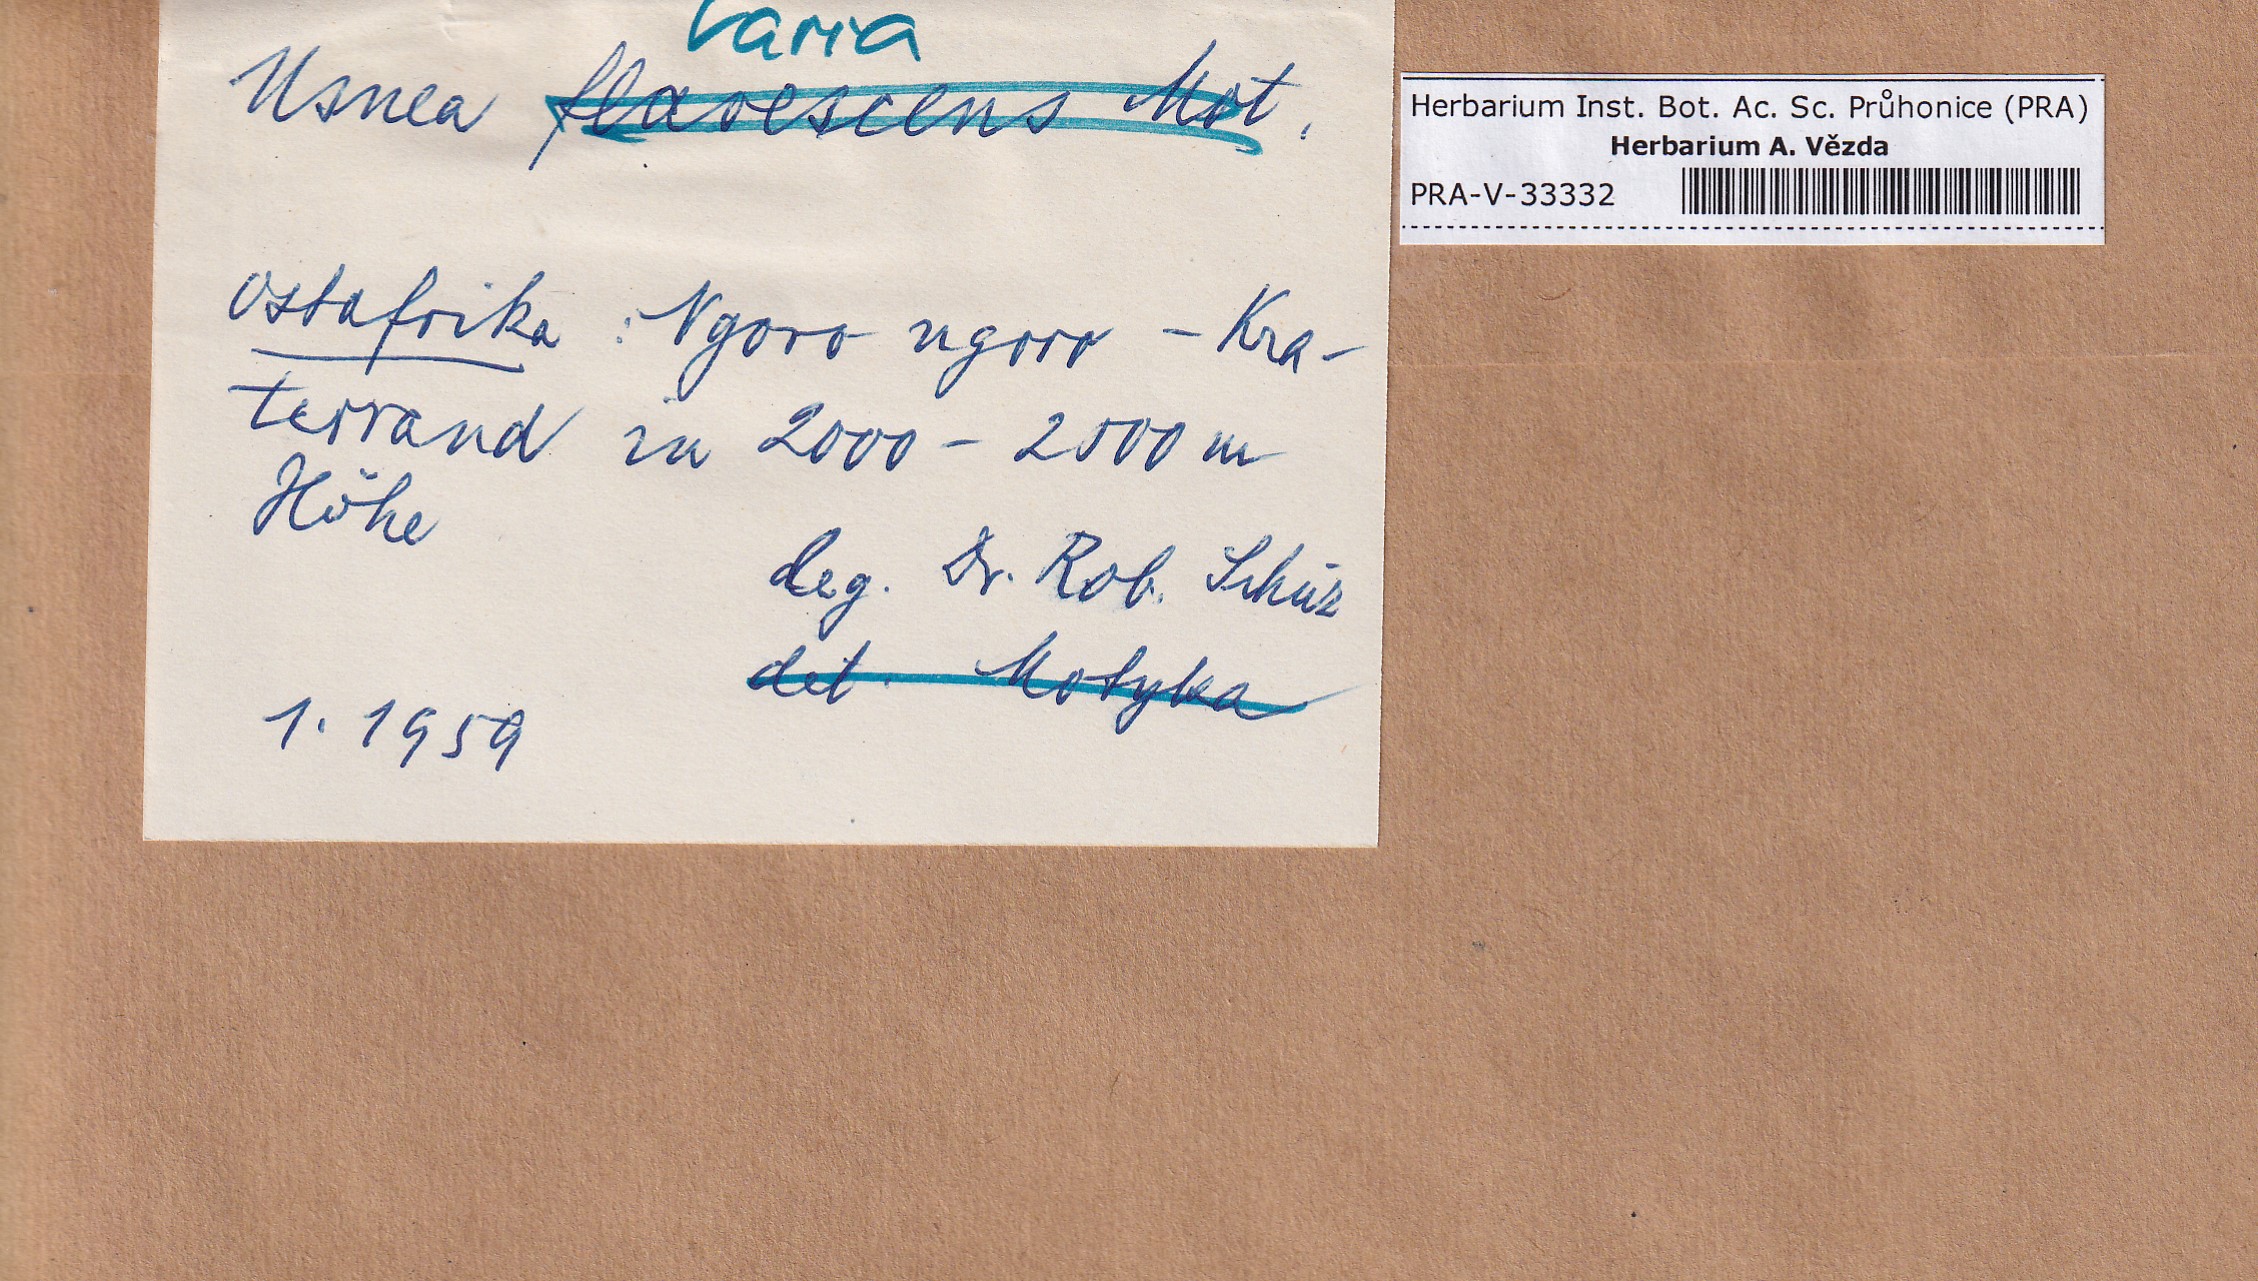 varia
Usnea flavescens Mot.
Ostafrika : Ngoro ngoro - Kra-
terrand in 2000 - 2500 m
Höhe
leg. Dr. Rob. Schüz
det. Motyka
1. 1959
Herbarium Inst. Bot. Ac. Sc. Průhonice (PRA)
Herbarium A. Vězda
PRA-V-33332